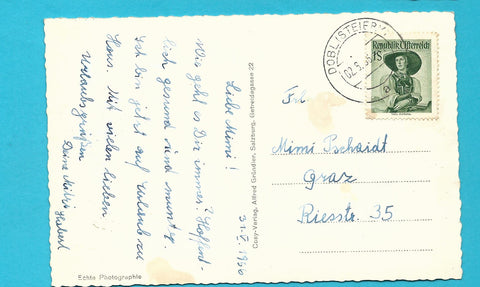 Liebe Mimi!
Wie geht es Dir immer? Hoffent-
lich gesund und munter.
Ich bin jetzt auf Urlaub zu
Haus. Mit vielen lieben
Urlaubsgrüßen
Deine
Hubert
31.V. 1960
Echte Photographie
Cosy-Verlag, Alfred Gründler, Salzburg, Getreidegasse 22
DOBL (STEIERM
02.5.
Republik Österreich
1S
Frl.
Mimi Pschaidt
Graz
Riesstr. 35